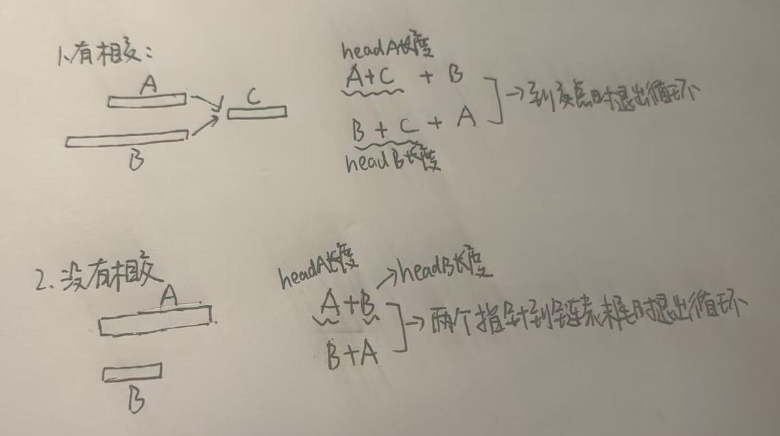 1.有相交:
A
C
B
headA长度
A+C + B
B + C + A
headB长度
→到交点时退出循环
2.没有相交
A
B
headA长度
→headB长度
A+B
B+A
→两个指针到全链表末尾时退出循环